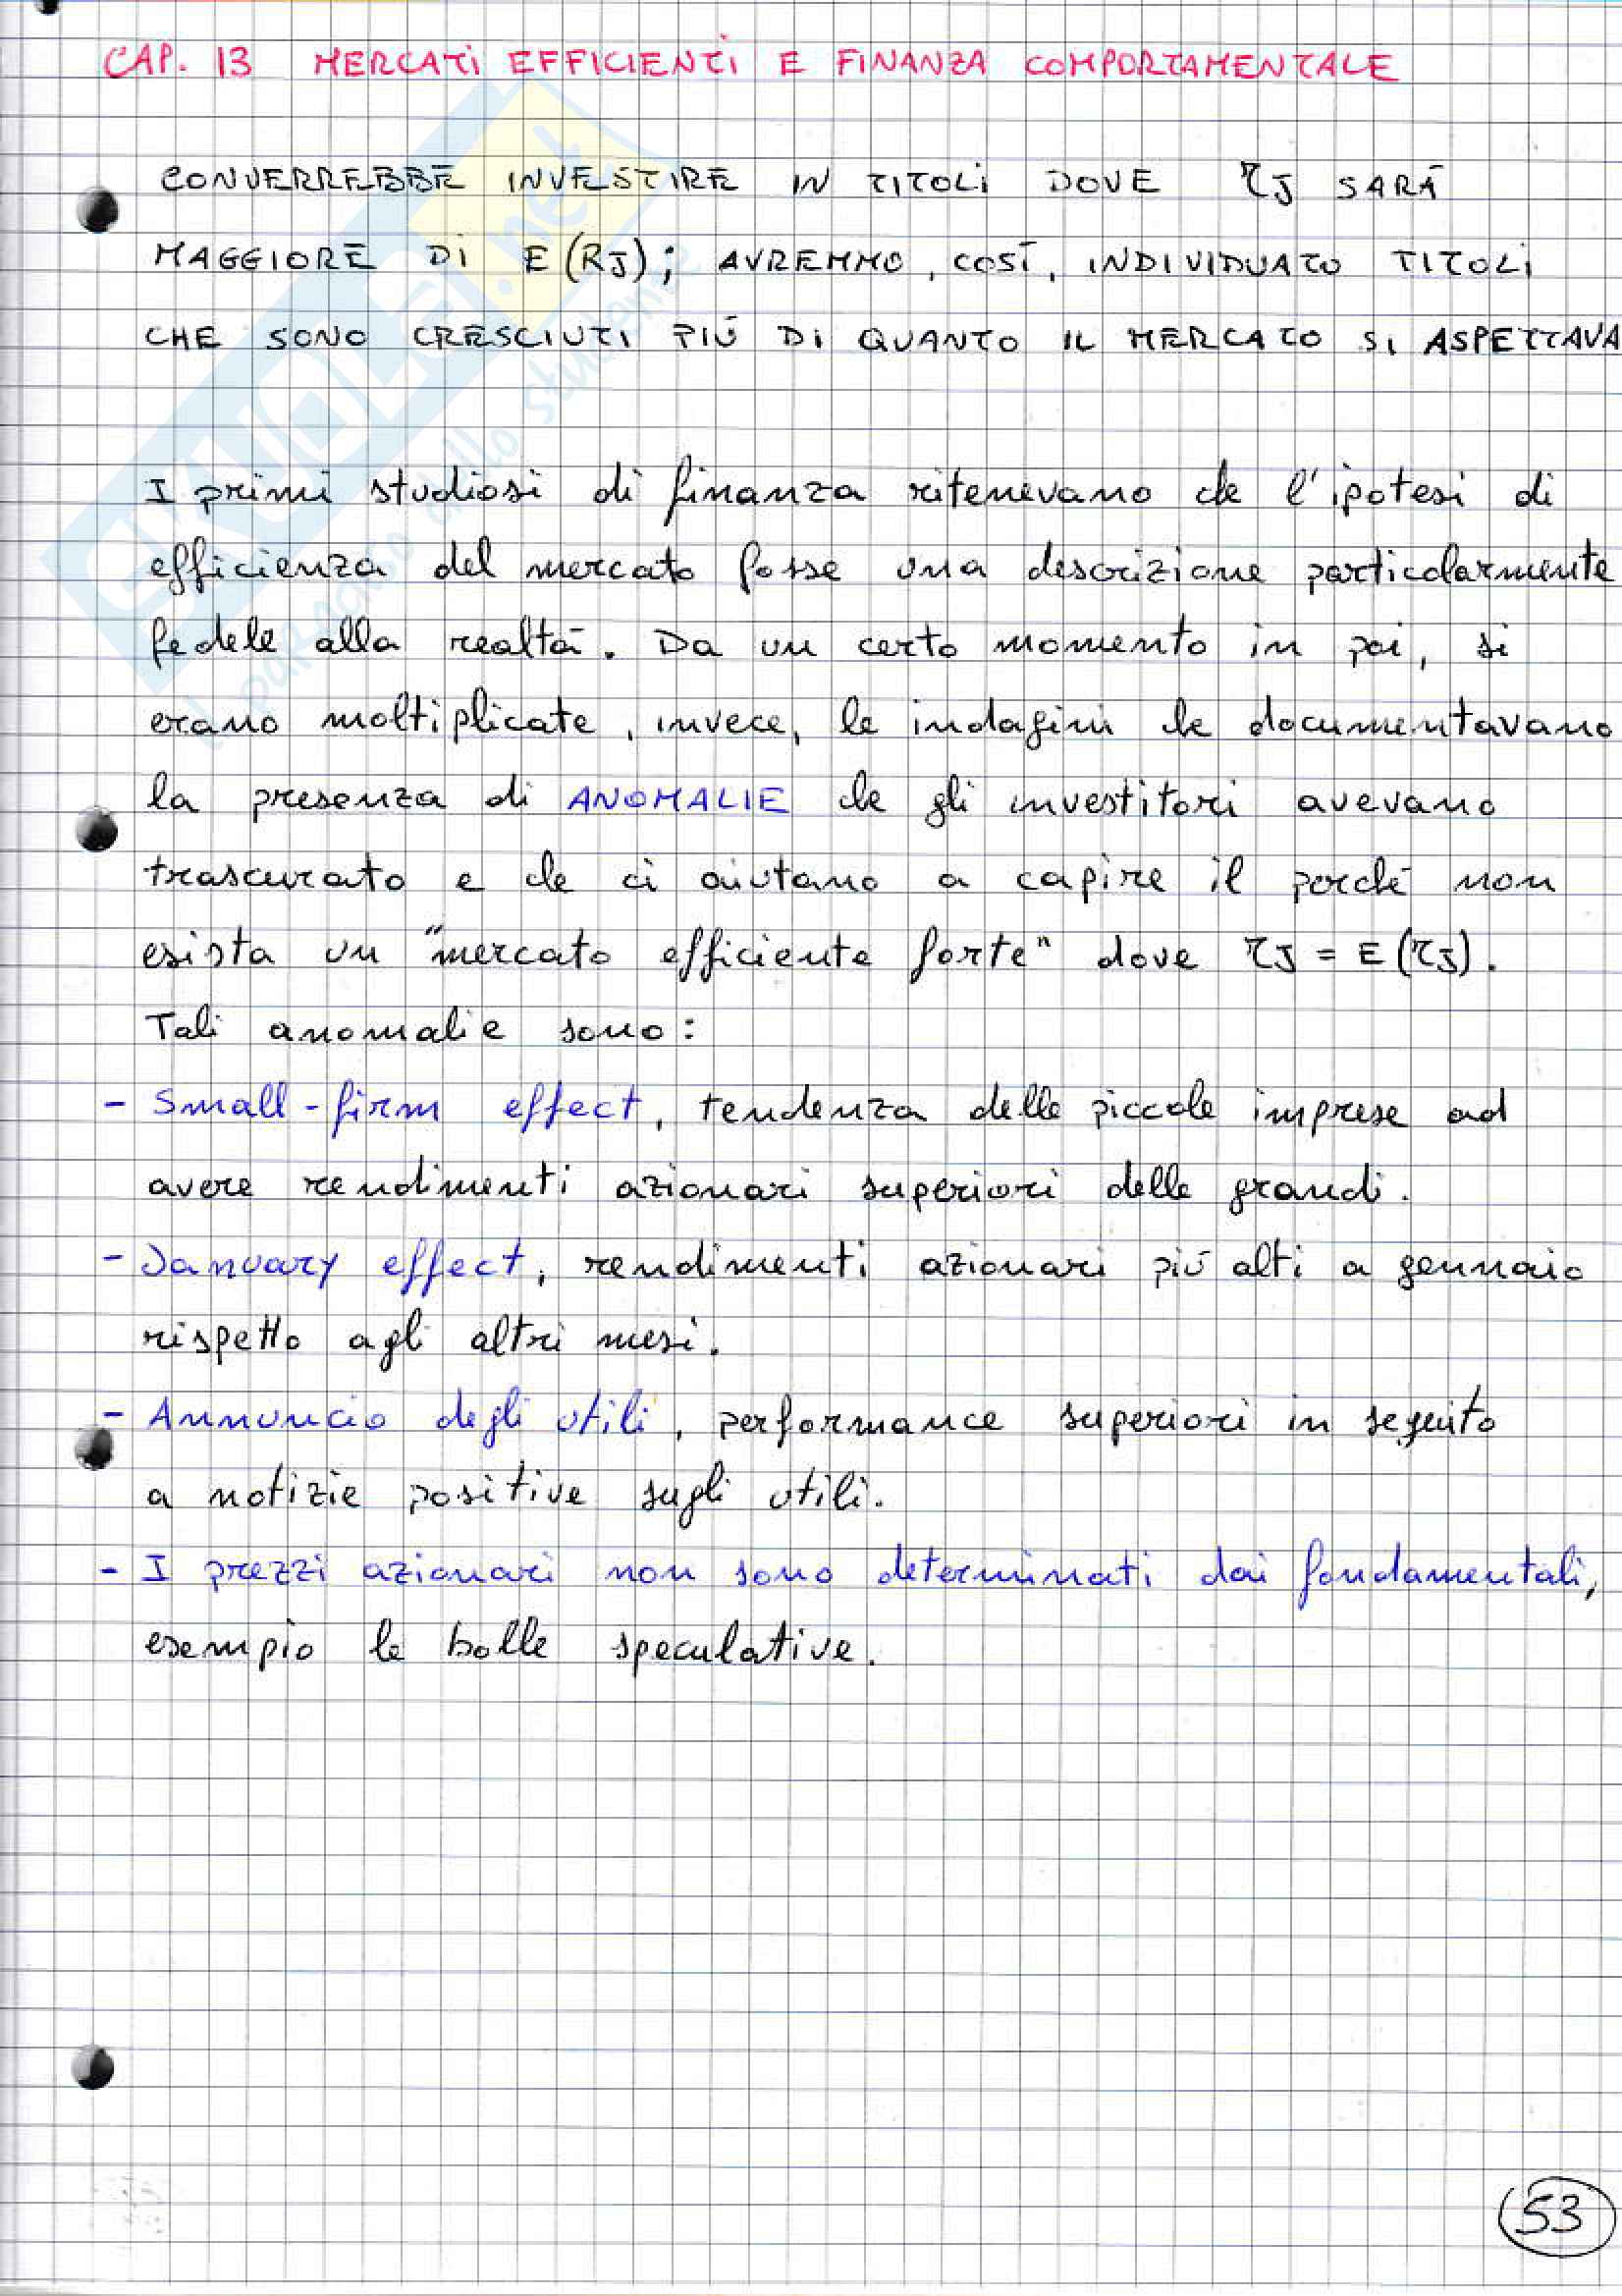 CAP. 13 MERCATI EFFICIENTI E FINANZA COMPORTAMENTALE
CONVERREBBE INVESTIRE IN TITOLI DOVE rJ SARÁ
MAGGIORE DI E(RJ); AVREMMO, COSÍ, INDIVIDUATO TITOLI
CHE SONO CRESCIUTI PIÚ DI QUANTO IL MERCATO SI ASPETTAVA
I primi studiosi di finanza ritenevano che l'ipotesi di
efficienza del mercato fosse una descrizione particolarmente
fedele alla realtá. Da un certo momento in poi, si
erano moltiplicate, invece, le indagini che documentavano
la presenza di ANOMALIE che gli investitori avevano
trascurato e che ci aiutano a capire il perché non
esista un "mercato efficiente forte" dove rJ = E(rJ).
Tali anomalie sono:
- Small-firm effect, tendenza delle piccole imprese ad
avere rendimenti azionari superiori delle grandi.
- January effect, rendimenti azionari piú alti a gennaio
rispetto agli altri mesi.
- Annuncio degli utili, performance superiori in seguito
a notizie positive sugli utili.
- I prezzi azionari non sono determinati dai fondamentali,
esempio le bolle speculative.
53
SKUOLA.net
il paradiso dello studente